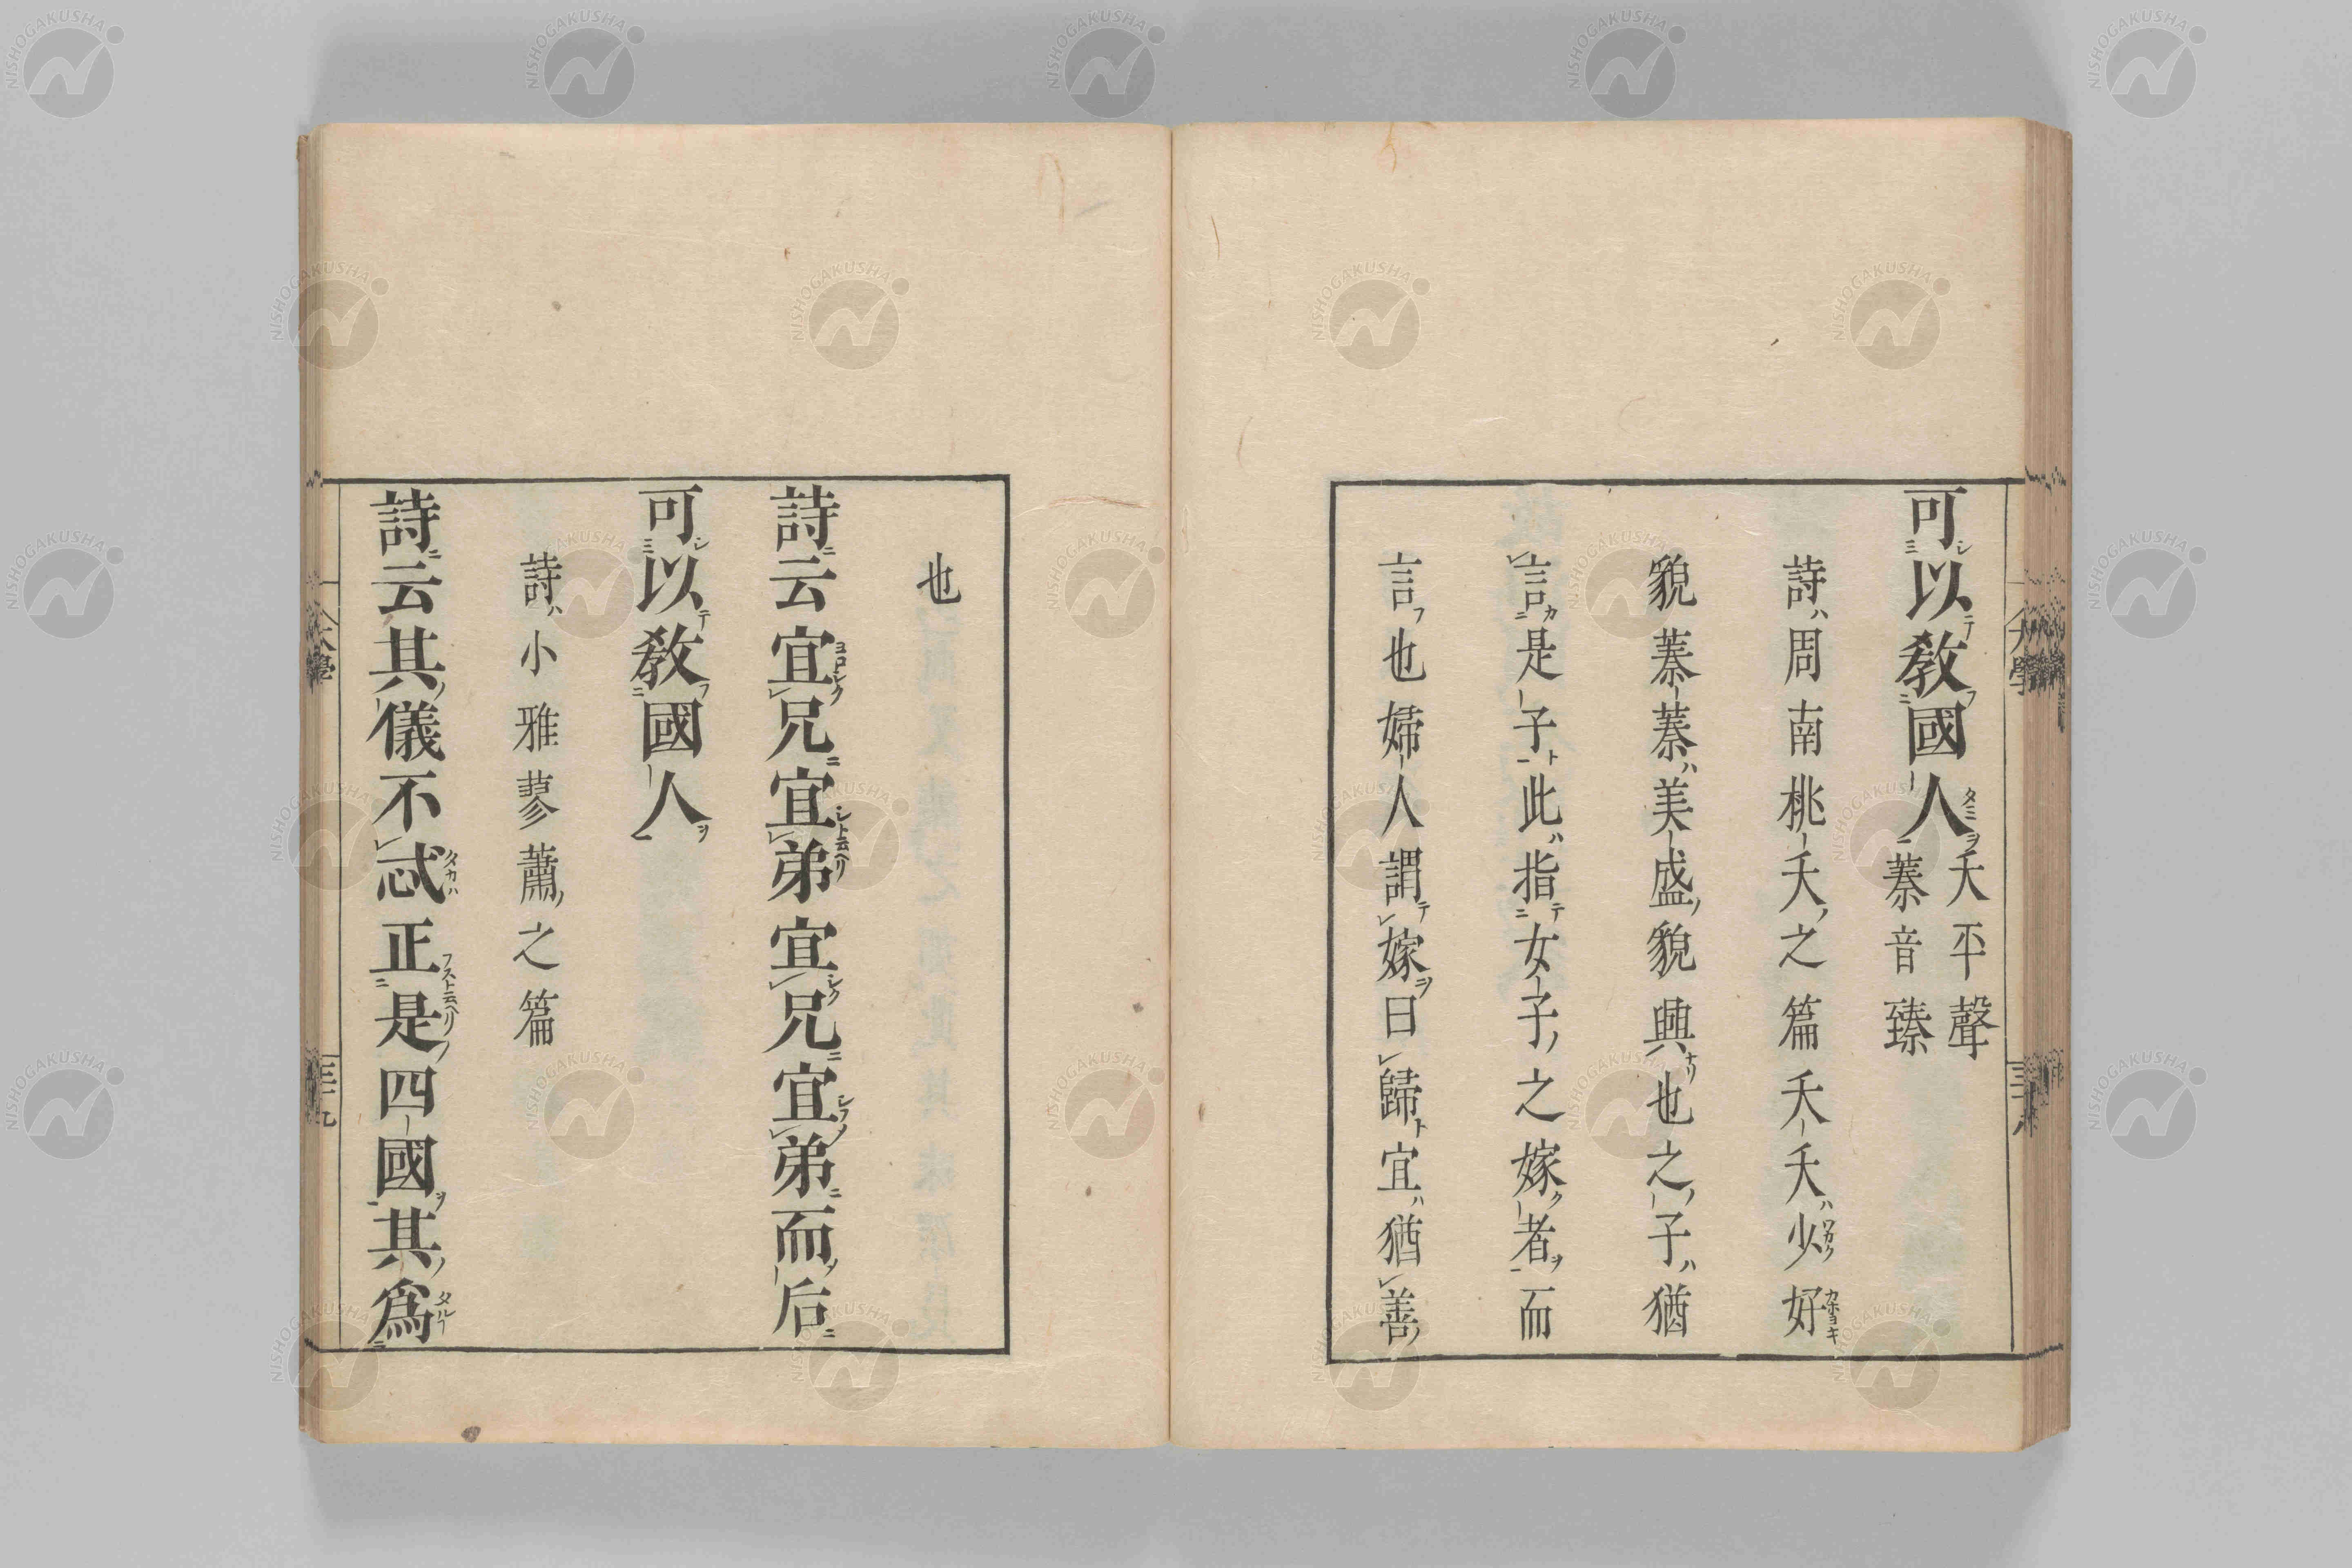 可以教國人夭平聲蓁音臻
詩周南桃夭之篇夭夭少好
貌蓁蓁美盛貌興也之子猶
言是子此指女子之嫁者而
言也婦人謂嫁曰歸宜猶善
也
詩云宜兄宜弟宜兄宜弟而后
可以教國人
詩小雅蓼蕭之篇
詩云其儀不忒正是四國其爲
大學
三十九
NISHOGAKUSHA